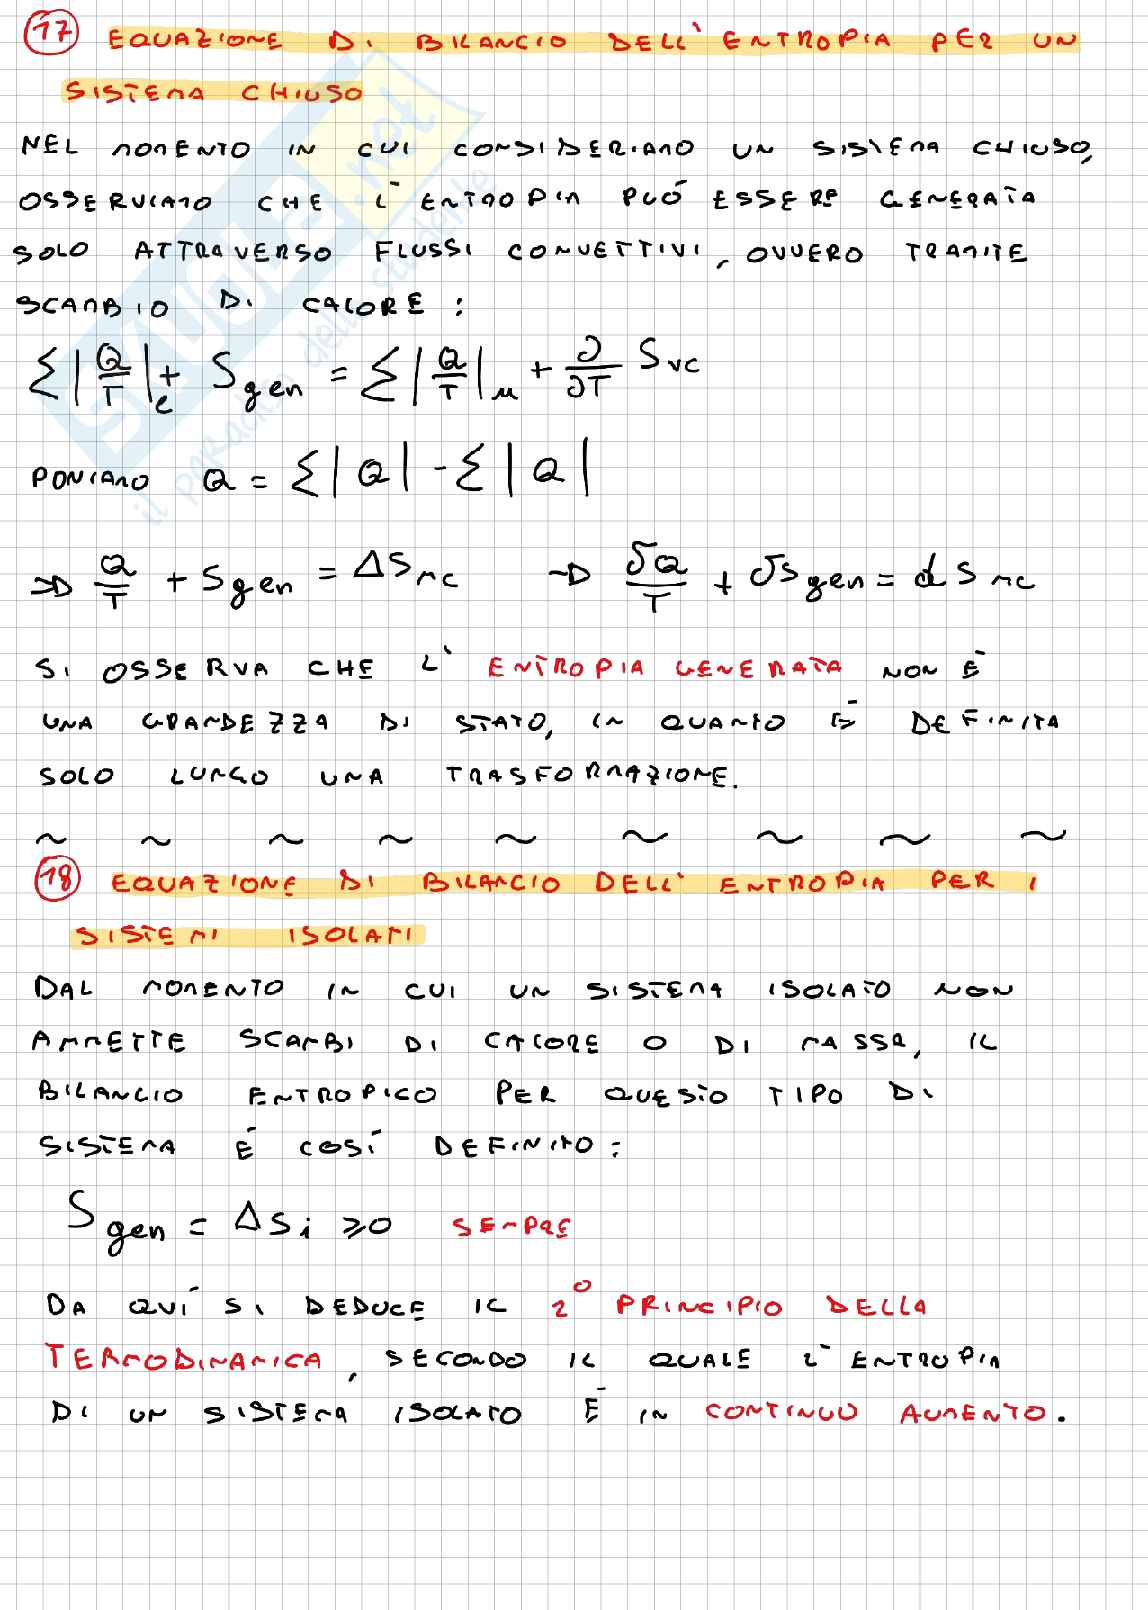 17 EQUAZIONE DI BILANCIO DELL'ENTROPIA PER UN
SISTEMA CHIUSO
NEL MOMENTO IN CUI CONSIDERIAMO UN SISTEMA CHIUSO,
OSSERVIAMO CHE L'ENTROPIA PUÓ ESSERE GENERATA
SOLO ATTRAVERSO FLUSSI CONVETTIVI, OVVERO TRAMITE
SCAMBIO DI CALORE:
Σ|Q/T|e + Sgen = Σ|Q/T|u + ∂/∂T Svc
PONIAMO Q = Σ|Q| - Σ|Q|
⇒ Q/T + Sgen = ΔSmc → δQ/T + δSgen = dSmc
SI OSSERVA CHE L'ENTROPIA GENERATA NON É
UNA GRANDEZZA DI STATO, IN QUANTO É DEFINITA
SOLO LUNGO UNA TRASFORMAZIONE.
~ ~ ~ ~ ~ ~ ~ ~ ~
18 EQUAZIONE DI BILANCIO DELL'ENTROPIA PER I
SISTEMI ISOLATI
DAL MOMENTO IN CUI UN SISTEMA ISOLATO NON
AMMETTE SCAMBI DI CALORE O DI MASSA, IL
BILANCIO ENTROPICO PER QUESTO TIPO DI
SISTEMA É COSÍ DEFINITO:
Sgen = ΔSi ≥0 SEMPRE
DA QUÍ SI DEDUCE IL 2° PRINCIPIO DELLA
TERMODINAMICA, SECONDO IL QUALE L'ENTROPIA
DI UN SISTEMA ISOLATO É IN CONTINUO AUMENTO.
SKUOLA.net
il paradiso dello studente